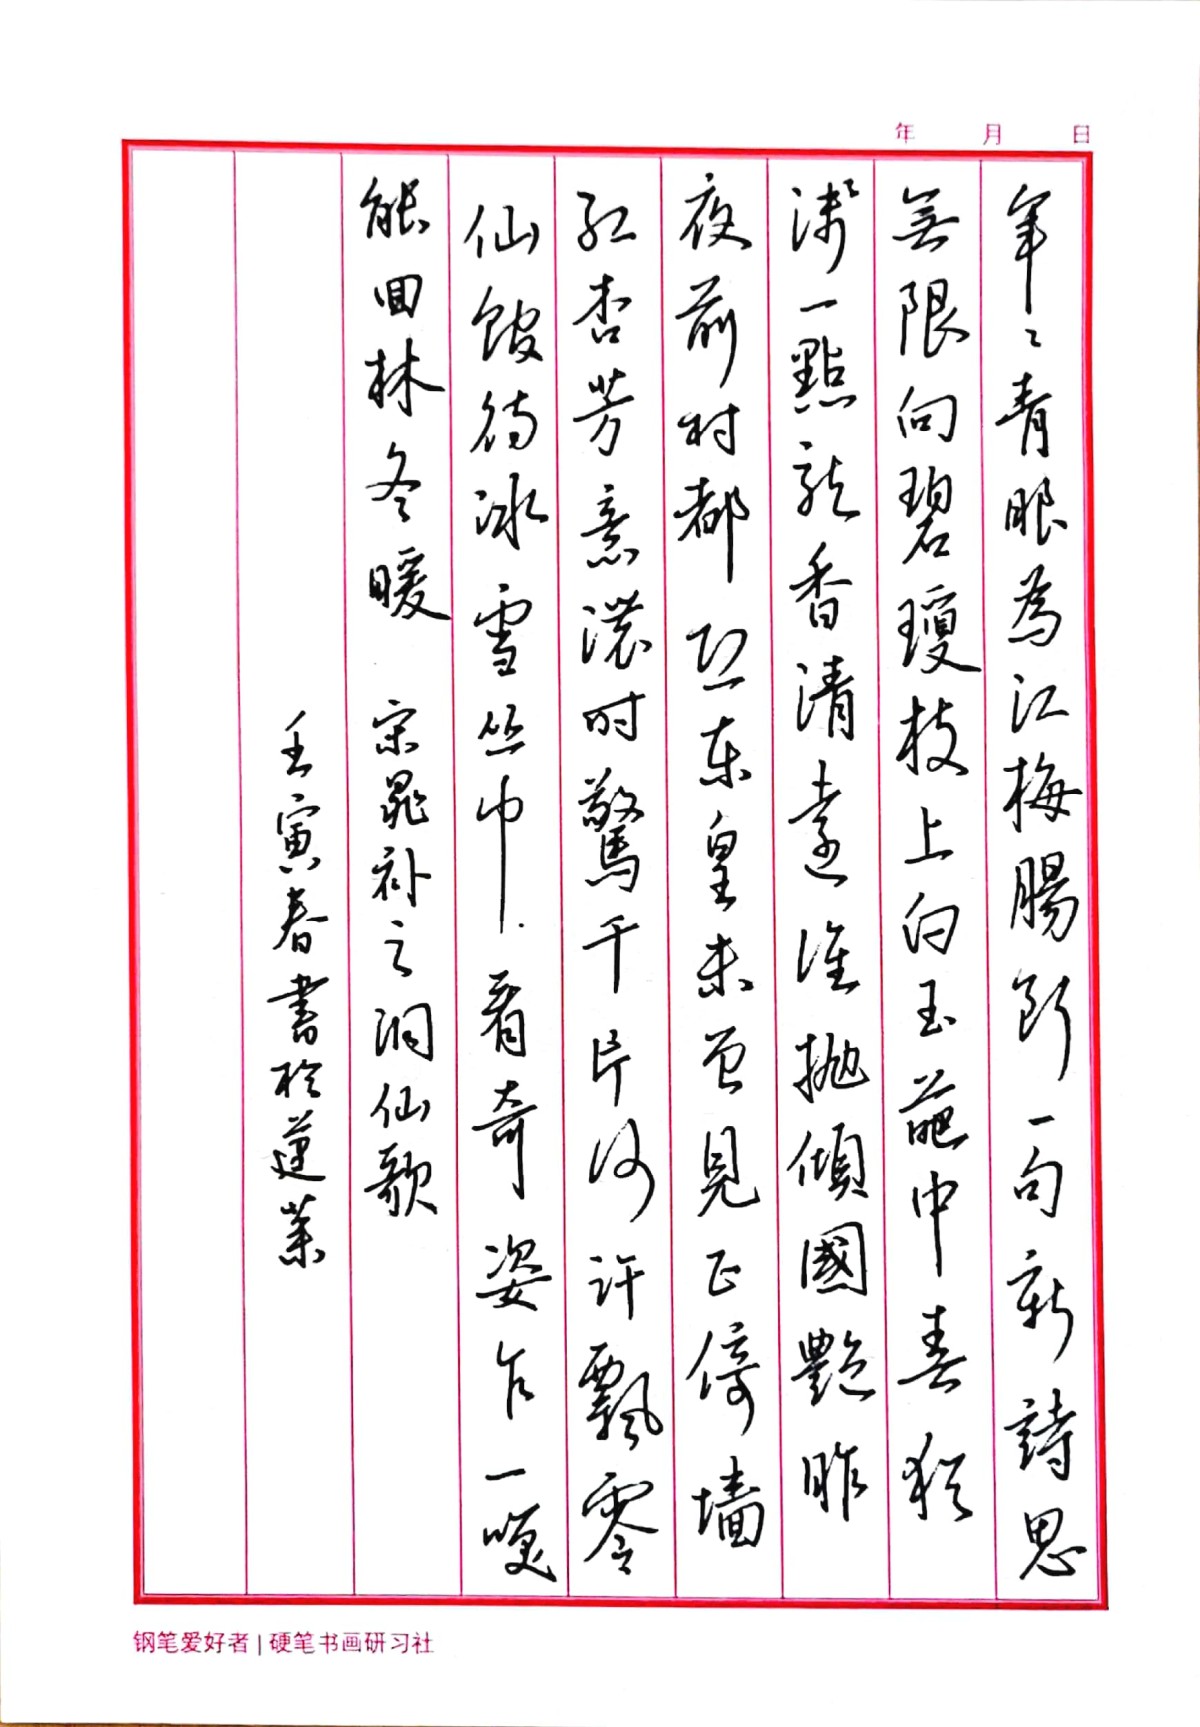 年 月 日
年〻青眼為江梅腸斷一句新詩思
無限向碧瓊枝上白玉葩中春猶
淺一點龍香清遠誰拋傾國艷昨
夜前村都恐東皇未曾見正倚墻
紅杏芳意濃时驚千片何許飄零
仙館待冰雪丛中看奇姿乍一咲
能回林冬暖 宋晁补之洞仙歌
壬寅春書於蓮葉
钢笔爱好者 | 硬笔书画研习社